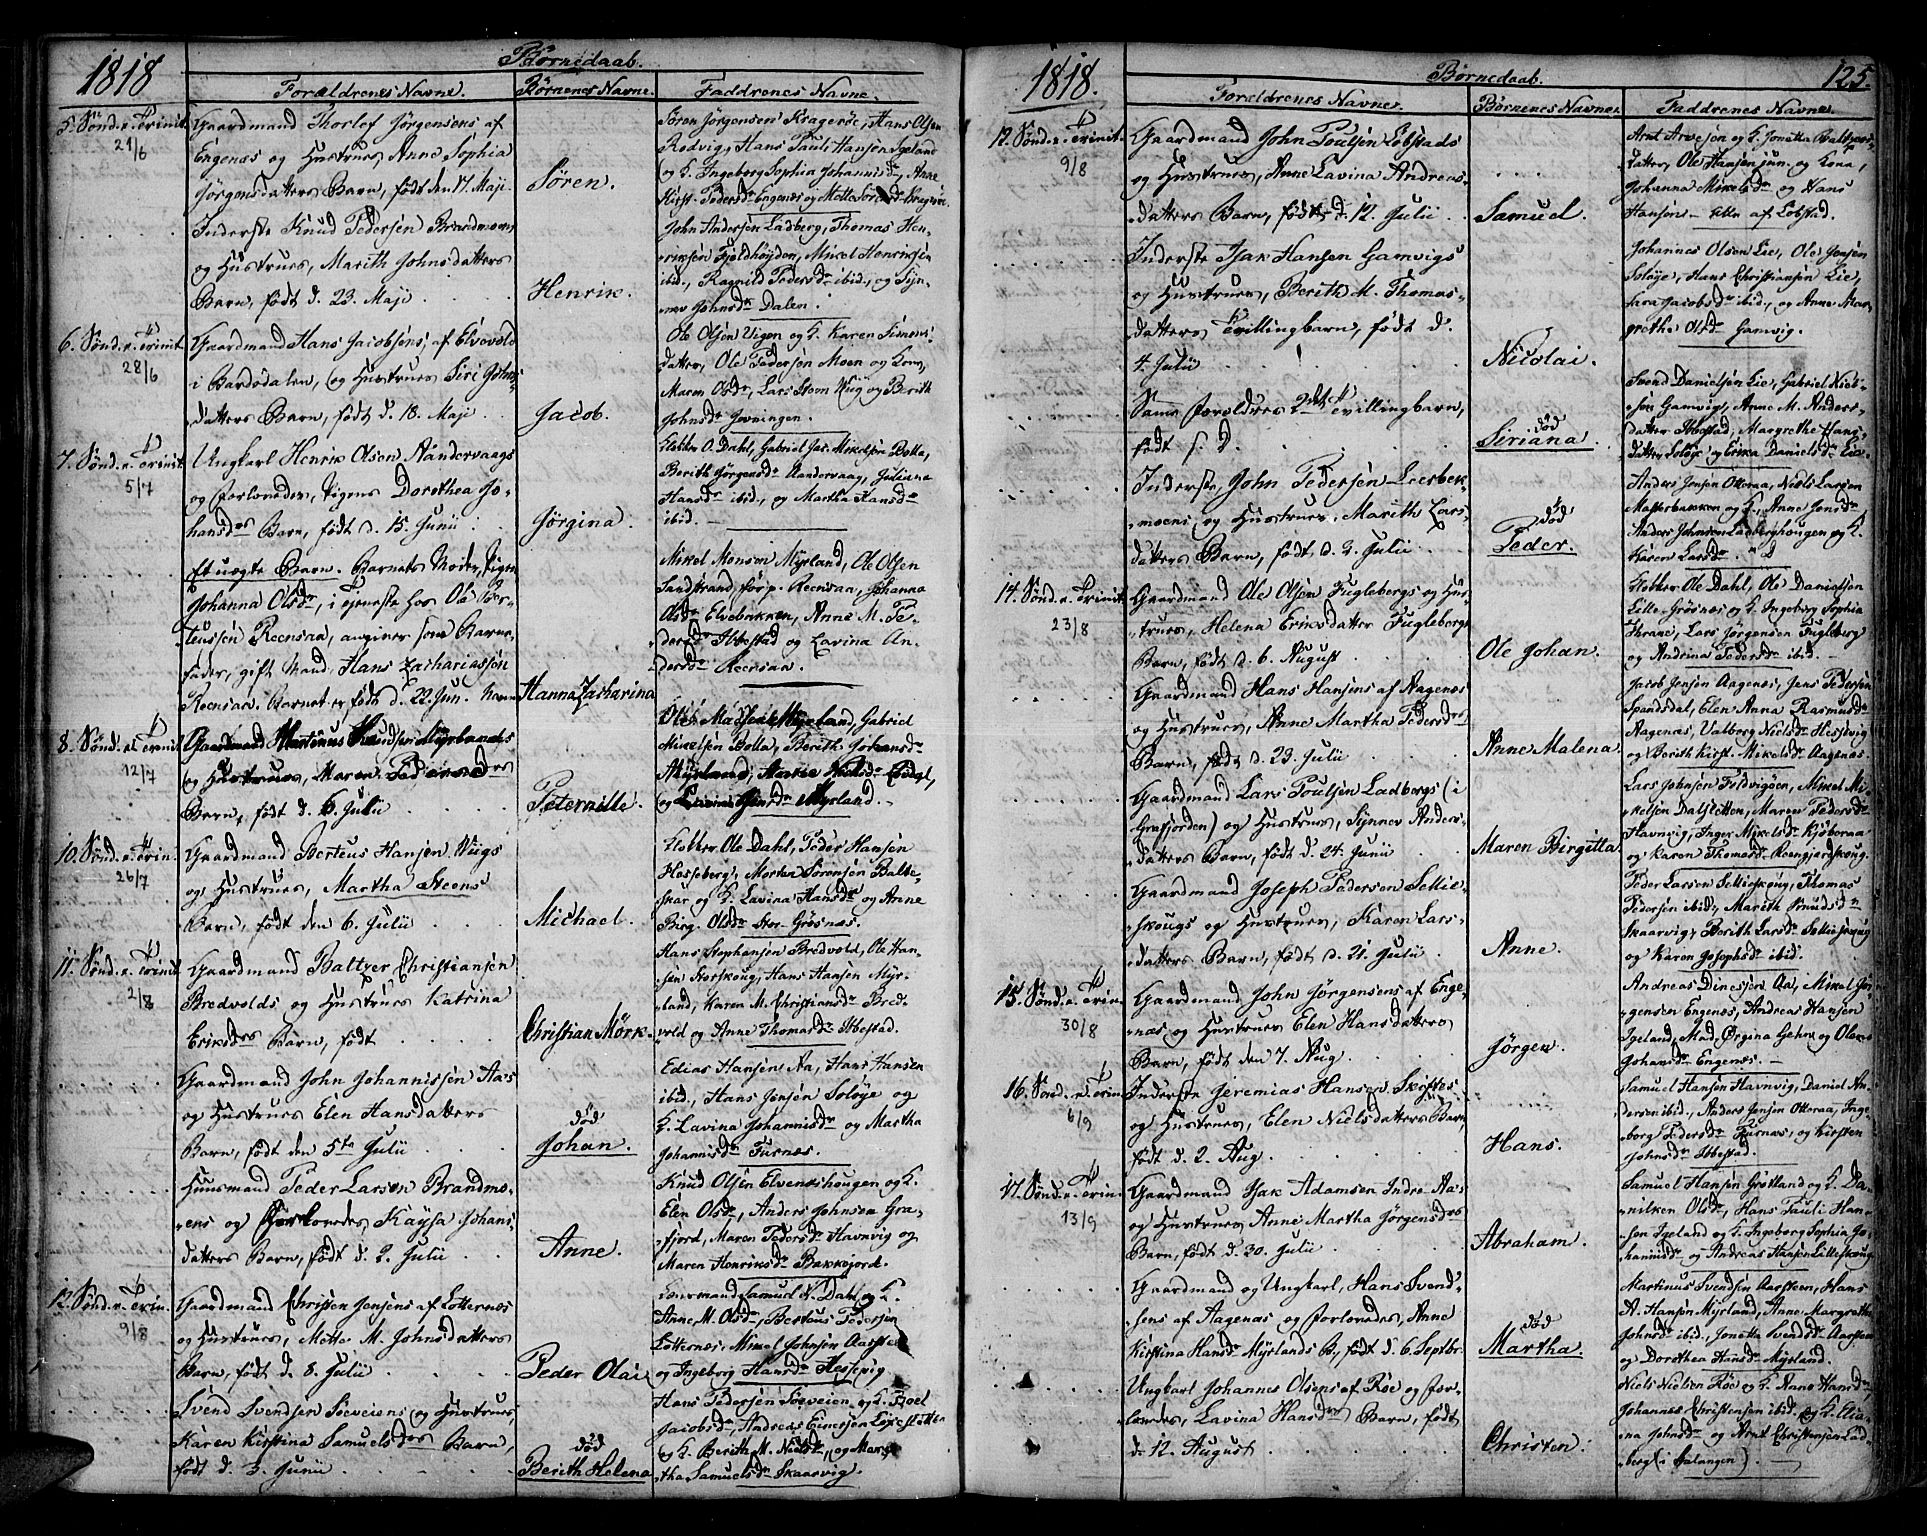 1818
Børnedaab.
Forældrenes Navne.
Børnenes Navne.
Faddrenes Navne.
5. Sønd. e. Trinit.
21/6
Gaardmand Thorlef Jörgensens af
Engenæs og Hustrues, Anne Sophia
Jörgensdatters Barn, født den 17. Maji.
Sören.
Sören Jörgensen Kragerøe, Hans Olsen
Rodvig, Hans Pauli Hansen Igeland
og H. Ingeborg Sophia Johannisdr, Anne
Kirst. Pedersdr Engenæs og Mette
Inderste Knud Pedersen Brandmoens
og Hustrues, Marith Johnsdatters
Barn, født d. 23. Maji
Henrik.
John Andersen Ladberg, Thomas Hen-
riksen Fjeldhøyden, Mikel Henriksen
ibid., Ragnild Pedersdr ibid., og Syn-
nev Johnsdr Dalen.
6. Sønd. e. Trinit.
28/6
Gaardmand Hans Jacobsens, af Elvevold
i Bardodalen, og Hustrues Siri Johns-
datters Barn, født d. 18. Maji
Jacob.
Ole Olsen Vigen og H. Karen Simens-
datter, Ole Pedersen Moen og Kone,
Maren Olsdr, Lars Steen Wiig og Berith
Johnsdr
7. Sønd. e. Trinit.
5/7
Ungkarl Henrik Olsen Aandervaags
og forlovedes, Pigens Dorothea Jo-
hansdrs Barn, født d. 15. Junii
Jörgina.
Klokker O. Dahl, Gabriel Jac. Mikelsen Bolla,
Berith Jörgensdr Aandervaag, Juliana
Hansdr ibid., og Martha Hansdr
ibid.
Et uægte Barn. Barnets Moder, Pigen
Johanna Olsdr, i tjeneste hos Ole Ber-
teussen Reensaa, angiver som Barne-
fader, gift Mand, Hans Zachariassen
Reensaa. Barnet er født d. 22. Jun.
Hanna Zacharina
Mikel Monsen Myrland, Ole Olsen
Sandstrand, Reensaa, Johanna
Olsdr Elvebakken, Anne M. Pe-
dersdr Ibbestad og Lavina An-
dersdr Reensaa.
8. Sønd. e. Trinit.
12/7
Gaardmand Martinus Knudsen Myrlands
og Hustrues, Maren Pedersdrs
Barn, født d. 5 Julii
Peternille.
Ole Madsen Myrland, Gabriel
Mikelsen Bolla, Berith Johansdr
Myrland,
og Lavina Myrland.
10. Sønd. e. Trin.
26/7
Gaardmand Berteus Hansen Wiigs
og Hustrues, Martha Steens
Barn, født den 6. Julii
Michael.
Klokker Ole Dahl, Peder Hansen
Hesseberg, Morten Sörensen Balte-
skar og H. Lavina Hansdr og Anne
Birg. Olsdr Stor Gröenæs.
11. Sønd. e. Trinit.
2/8
Gaardmand Baltzer Christiansen
Bredvolds og Hustrues Katrina
Eriksdrs Barn, født
Christian Mörk.
Hans Stephansen Bredvold, Ole Han-
sen Storskoug, Hans Hansen Myr-
land, Karen M. Christiansdr Bred-
vold og Anne Thomasdr Ibbestad.
Gaardmand John Johannissen Aas
og Hustrues Elen Hansdatters
Barn, født den 5te Julii
død
Johan.
Edias Hansen Aa, Hans Hansen
ibid., Hans Jensen Soløye og
H. Lavina Johannisdr og Martha
Johannisdr Furnæs.
Huusmand Peder Larsen Brandmo-
ens og Forlovedes Kaysa Johans-
datters Barn, født d. 2. Julii
Anne.
Knud Olsen Elveneshougen og H.
Elen Olsdr, Anders Johnsen Gra-
fjord, Maren Pedersdr Havnvig og
Maren Henriksdr Bakkejord.
12. Sønd. e. Trin.
9/8
Gaardmand Christen Jensens af Lotternæs
og Hustrues, Mette M. Johnsdatters
Barn, født d. 8. Julii
Peder Olai
Samuel N. Dahl og H.
Anne M. Olsdr, Berteus Pedersen
Lotternæs, Mikel Johnsen Aarsteen
og Ingeborg Hansdr Hessevig
Svend Svendsen Soeveiens og Hustrues,
Karen Kirstina Samuelsdrs Barn,
født d. 3. Junii
død
Berith Helena
Hans Pedersen Soeveien, og H.
Jacobsdr, Andreas
og H. Berith M. Nielsdr, og Mar-
tha Samuelsdr Skaarvig.
1818.
Børnedaab.
125.
Forældrenes Navne.
Børnenes Navne.
Faddrenes Navne.
12. Sønd. e. Trinit.
9/8
Gaardmand John Poulsen Lobstads
og Hustrues, Anne Lavina Andreas-
datters Barn, født d. 12. Julii
Samuel.
Arnt Arnesen og H. Jonetta Baldzers-
datter, Ole Hansen jun. og Kona,
Johanna Mikelsdr og Hans
Hansen - alle af Lobstad.
Inderste Isak Hansen Gamvigs
og Hustrues, Berith M. Thomas-
datters Tvillingbarn, født d.
4. Julii
Nicolai.
Johannes Olsen Lie, Ole Jensen
Soløye, Hans Christiansen Lie,
Sara Jacobsdr ibid., og Anne Mar-
grethe Olsdr Gamvig.
Samme Forældres 2det Tvillingbarn,
født s. d.
død
Seriana.
Svend Danielsen Lie, Gabriel
Gamvig, Anne M. Anders-
datter Ibbestad, Margrethe Hans-
datter Soløye og Erika Danielsdr Lie
Inderste, John Pedersen Leesbek-
moens og Hustrues, Marith Lars-
datters Barn, født d. 3. Julii
død
Peder.
Anders Jensen Otteraa, Niels Larsen
Masterbakken og H., Anne Jensdr
Anders Johnsen Ladberghougen og H.
Karen Larsdr
14. Sønd. e. Trinit.
23/8
Gaardmand Ole Olsen Fuglebergs og Hus-
trues, Helena Ericsdatter Fuglebergs
Barn, født d. 6. August
Ole Johan.
Klokker Ole Dahl, Ole Danielsen
Lille-Gröenæs og H. Ingeborg Sophia
Thrane, Lars Jörgensen Fugleberg
og Andrina Pedersdr ibid.
Gaardmand Hans Hansens af Aagenæs
og Hustrues, Anne Martha Pedersdrs
Barn, født d. 23. Julii
Anne Malena.
Jacob Jensen Aagenæs, Jens Pedersen
Spandsdal, Elen Anna Rasmusdr
Aagenæs, Valborg Nielsdr Hessevig
og Berith Kirst. Mikelsdr Aagenæs.
Gaardmand Lars Poulsen Ladbergs (i
Grafjorden) og Hustrues, Synnev Anders-
datters Barn, født d. 24. Junii
Maren Birgitta
Lars Johnsen Foldvigøen, Mikel Mi-
kelsen Dalsletten, Maren Pedersdr
Havnvig, Inger Mikelsdr Kjöberaa
og Karen Thomasdr Reengjærdskoug.
Gaardmand Joseph Pedersen Sellie-
skougs og Hustrues, Karen Lars-
datters Barn, født d. 21. Julii
Anne
Peder Larsen Sellieskoug, Thomas
Pedersen ibid., Marith Knudsdr
Skaarvig, Berith Larsdr Sellieskoug
og Karen Josephsdr ibid.
15. Sønd. e. Trin.
30/8
Gaardmand John Jörgensens af Enge-
næs og Hustrues Elen Hansdatters
Barn, født den 7. Aug.
Jörgen.
Andreas Dinesen Aa, Mikel Jör-
gensen Engenæs, Andreas Hansen
Igeland, Mad. Örgina Gehn og Olava
Johansdr Engenæs.
16. Sønd. e. Trin.
6/9
Inderste Jeremias Hansen
og Hustrues, Elen Nielsdatters Barn,
født d. 2. Aug.
Hans.
Samuel Hansen Havnvig, Daniel An-
dersen ibid., Anders Jensen Otteraa, Inge-
borg Pedersdr Furnæs, og Kirsten
Johnsdr Ibbestad.
17. Sønd. e. Trin.
13/9
Gaardmand Isak Adamsen Indre Aa-
og Hustrues Anne Martha Jörgensdrs
Barn, født d. 30. Julii
Abraham.
Samuel Hansen Grötland og H. Da-
nilken Olsdr, Hans Pauli Han-
sen Igeland og H. Ingeborg Sophia Jo-
hannisdr og Andreas Hansen Lilleskoug
Gaardmand og Ungkarl, Hans Svend-
sens af Aagenæs og forlovedes, Anne
Kirstina Hansdr Myrlands B., født d. 6. Septbr.
død
Martha.
Martinus Svendsen Aarsteen, Hans
A. Hansen Myrland, Anne Margrethe
Johnsdr ibid., Jonetta Svendsdr Aarsteen
og Dorothea Hansdr Myrland.
Ungkarl Johannes Olsens af Röe og For-
lovedes, Lavina Hansdrs Barn, født
d. 12. August
Christen.
Niels Nielsen Röe og H. Anne Hansdr
Johannes Christensen ibid. og H. Elia-
na Johnsdr og Arnt Christensen Lad-
berg (i Salangen).